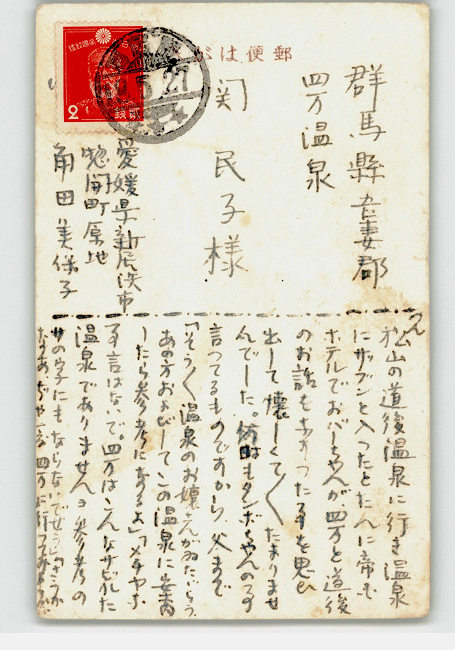 郵便はがき
群馬縣吾妻郡
四万温泉
関 民子様
2
5.27
愛媛県新居浜市
惣開町
角田美保子
松山の道後温泉に行き温泉
にザブンと入つたとたんに帝國
ホテルでおバーちやんが、四万と道後
のお話をなさつた事を思ひ
出して懐しくて〱たまりませ
んでした。何時もタンボちやんの
言つてるものですから、父まで
「そう〱温泉のお嬢さんがゐたらう
あの方およびしてこの温泉に案内
したら参考になるよ」メチヤな
事言はないで。四万はこんなサビれた
温泉でありませんヨ参考の
サの字にもならないでせう
四万に行つてみ